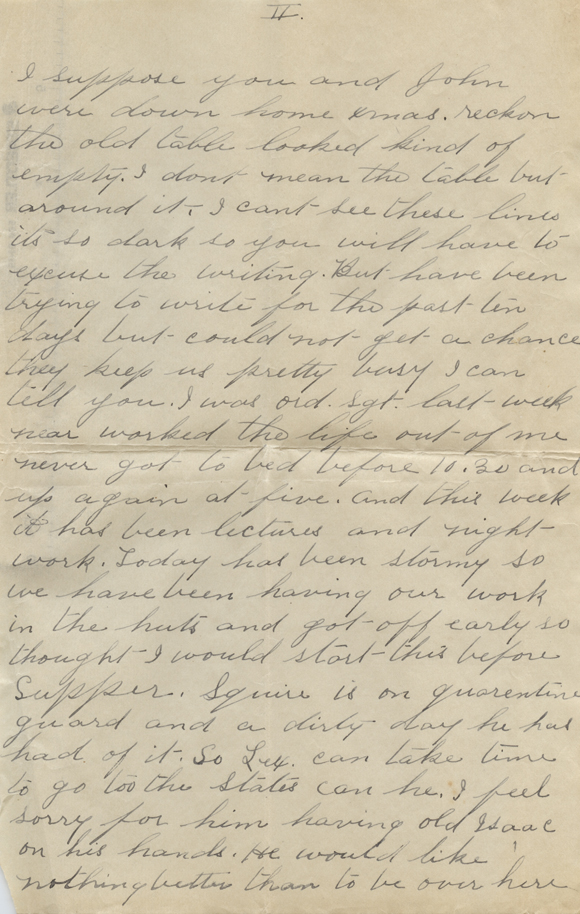 II.
I suppose you and John
were down home xmas. reckon
the old table looked kind of
empty. I dont mean the table but
around it. I cant see these lines
its so dark so you will have to
excuse the writing. But have been
trying to write for the past ten
days but could not get a chance
they keep us pretty busy I can
tell you. I was ord. sgt. last week
near worked the life out of me
never got to bed before 10.30 and
up again at five. and this week
it has been lectures and night
work. Today has been stormy so
we have been having our work
in the huts and got off early so
thought I would start this before
Supper. Squire is on quarentine
guard and a dirty day he has
had of it. So Lex. can take time
to go too the States can he. I feel
sorry for him having old Isaac
on his hands. He would like
nothing better than to be over here